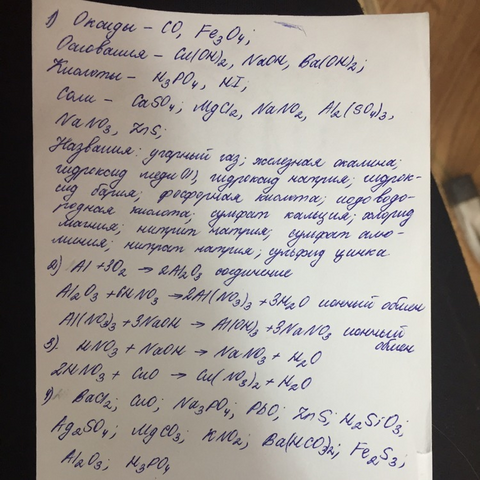 1) Оксиды – CO, Fe3O4;
Основания – Cu(OH)2, NaOH, Ba(OH)2;
Кислоты – H3PO4, HI;
Соли – CaSO4; MgCl2, NaNO2, Al2(SO4)3,
NaNO3, ZnS;
Названия: угарный газ; железная окалина;
гидроксид меди (II), гидроксид натрия; гидрок-
сид бария; фосфорная кислота; иодоводо-
родная кислота; сульфат кальция; хлорид
магния; нитрит натрия, сульфат алю-
миния; нитрат натрия; сульфид цинка
2) Al + 3O2 → 2Al2O3 соединение
Al2O3 + 6HNO3 → 2Al(NO3)3 + 3H2O ионный обмен
Al(NO3)3 + 3NaOH → Al(OH)3 + 3NaNO3 ионный
обмен
3) HNO3 + NaOH → NaNO3 + H2O
2HNO3 + CuO → Cu(NO3)2 + H2O
4) BaCl2; CuO; Na3PO4; PbO; ZnS; H2SiO3;
Ag2SO4; MgCO3; KNO2; Ba(HCO3)2; Fe2S3;
Al2O3; H3PO4